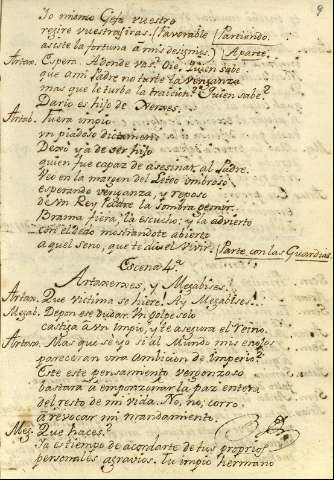 9
Io mismo Gefe vuestro
regire vuestras iras. (Favorable (Partiendo.
asiste la fortuna a mis designios.) (Aparte.
Artax. Espera. Adonde vas? Oid. Quien sabe
que a mi Padre no turbe la venganza
mas que le turbo la traicion? Quien sabe?
Dario es hijo de Xerxes.
Artab. Fuera impio
un piadoso dictamen.
Dexo ya de ser hijo
quien fue capaz de asesinar al Padre.
Veo en la margen del Leteo umbroso
esperando venganza, y reposo
de un Rey Padre la sombra gemir.
Brama fiera; la escucho; y la advierto
con el dedo mostrandote abierto
aquel seno, que te dio el vivir. (Parte con las Guardias.
Escena 4ª.
Artaxerxes, y Megabises.
Artax. Que victima se hiere. Ay Megabises.
Megab. Depon ese dudar. Un golpe solo
castiga a un Impio, y te asegura el Reino.
Artax. Mas que se yo si al Mundo mis enojos
pareceran una ambicion de Imperio?
Este este pensamiento vergonzoso
bastara a emponzonar la paz entera
del resto de mi vida. No, no, corro
a revocar mi mandamiento.
Meg. Que haces?
Ya es tiempo de acordarte de tus proprios
personales agravios. Tu impio hermano